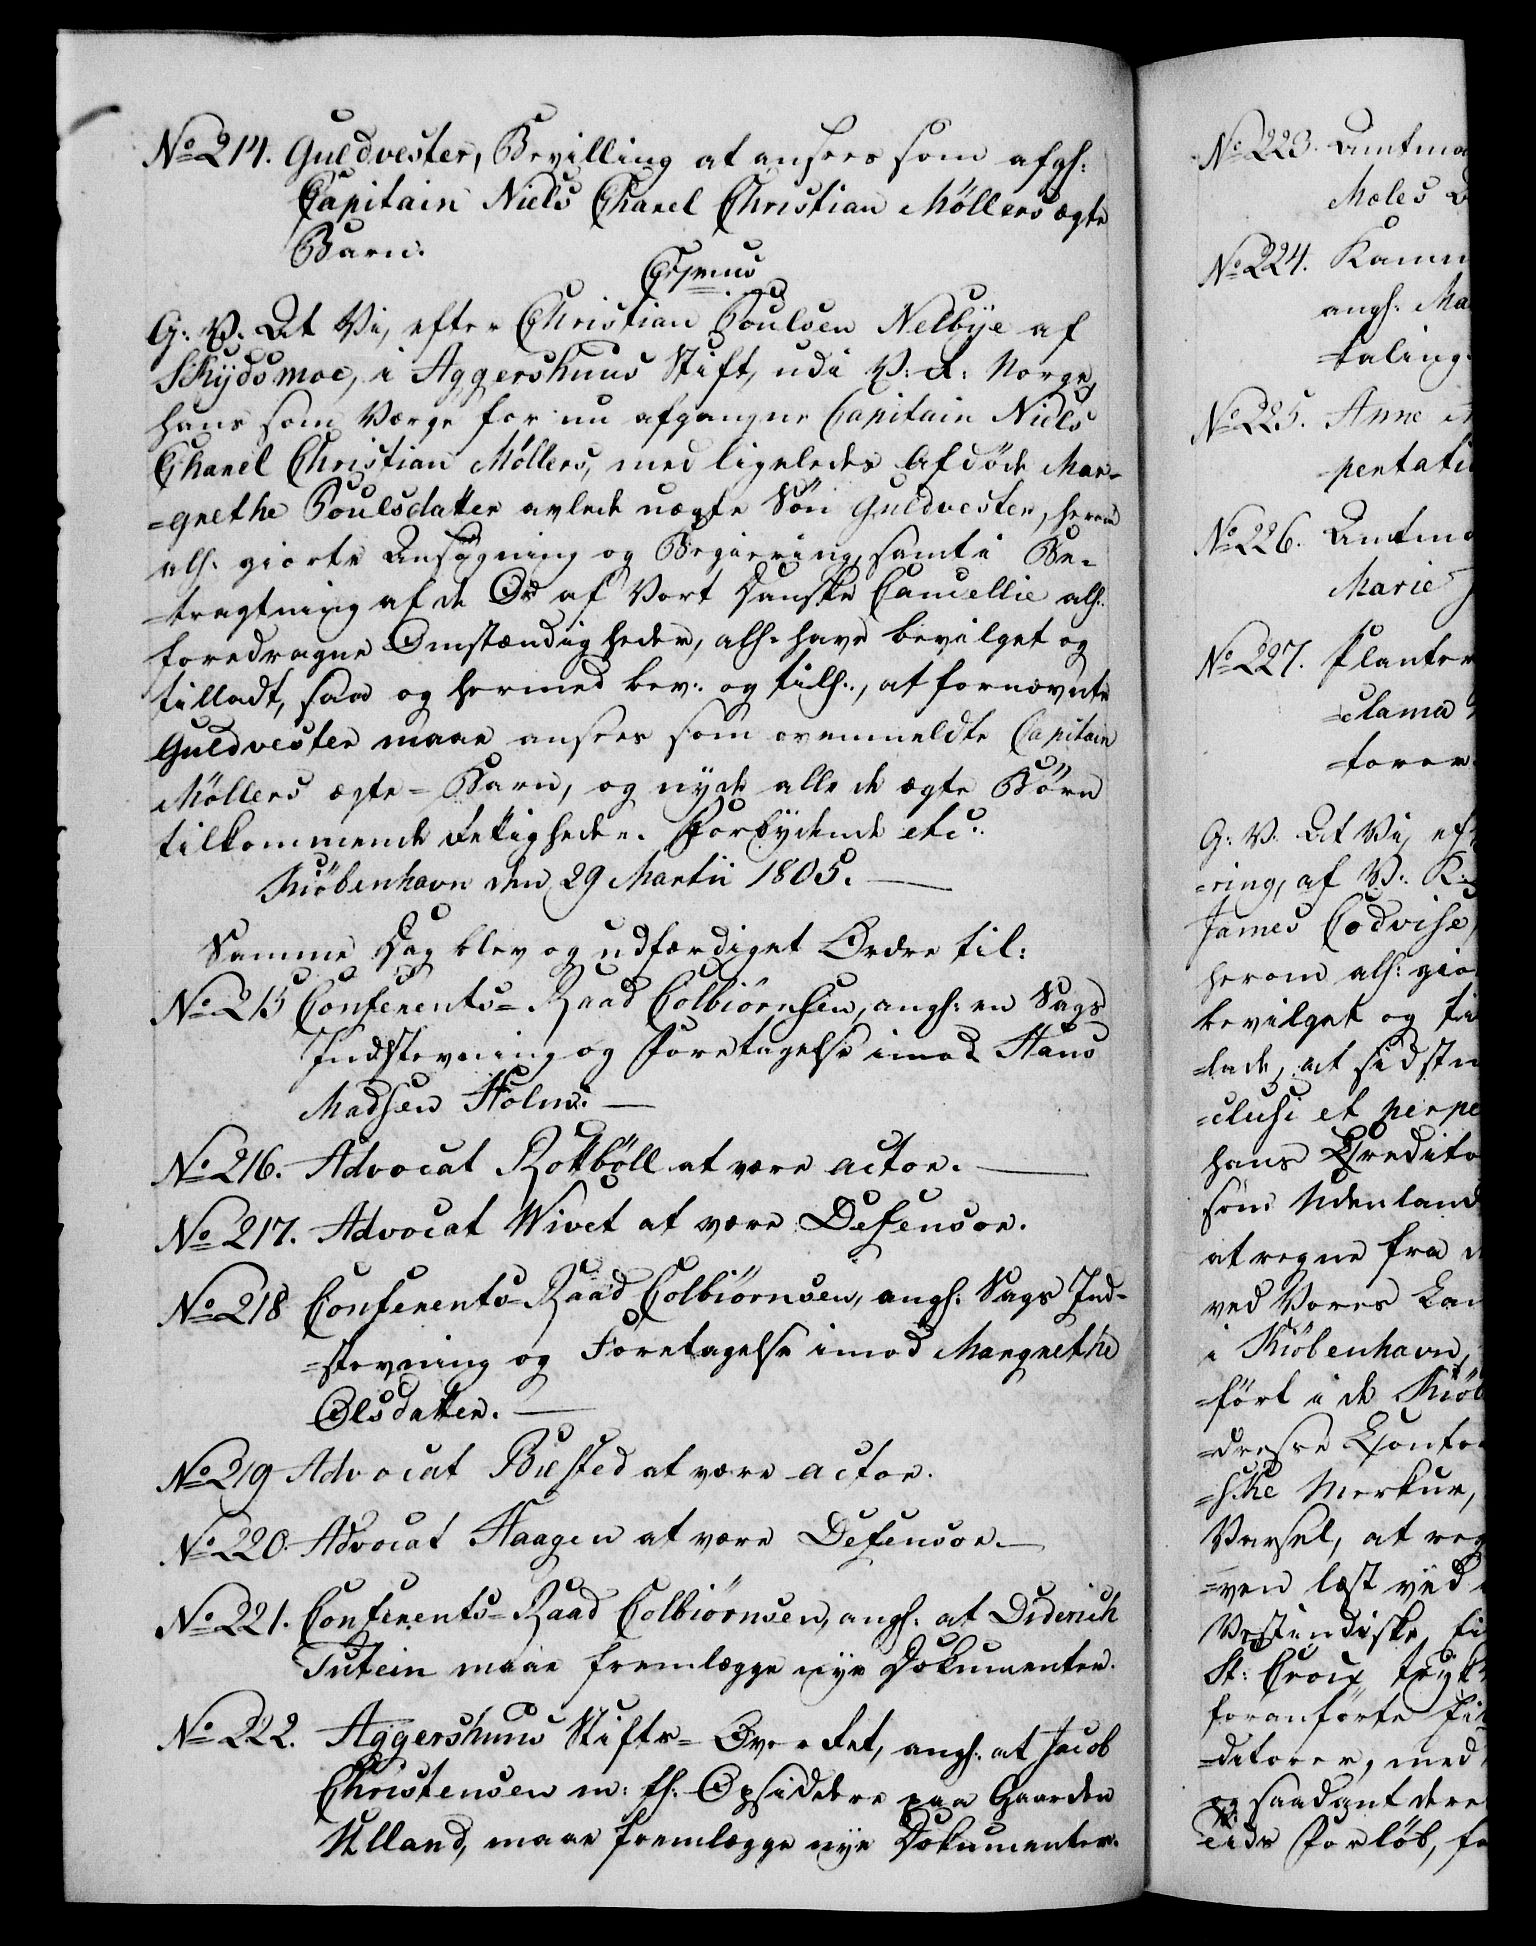 No 214. Guldvester, Bevilling at ansees som afgl:
Capitain Niels Charel Christian Möllers ægte
Barn.
G: V. At Vi, efter Christian Poulsen Nelbye af
Skydsmoe, i Aggershuus Stift, udi V: R: Norge,
hans som Værge for nu afgangne Capitain Niels
Charel Christian Möllers, med ligeledes Afdöde Mar-
=grethe Poulsdatter avlede uægte Sön Guldvester, herom
all: giorte Ansögning og Begiering, samt i Be-
=tragtning af de Os af Vort Danske Cancellie all:
foredragne Omstændigheder, all: have bevilget og
tilladt, saa og hermed bev: og till:, at fornævnte
Guldvester maae ansees som ovenmeldte Capitain
Möllers ægte=Barn, og nyde alle de ægte Börn
tilkommende Rettigheder. Forbydende etc:
Kiöbenhavn den 29 Martii 1805.
Samme Dag blev og udfærdiget Ordre til:
No 215 Conferents=Raad Colbiörnsen, angl: en Sags
Indstevning og Foretagelse imod Hans
Madsen Holm.
No 216. Advocat Rottböll at være Actor.
No 217. Advocat Wivet at være Defensor.
No 218 Conferents=Raad Colbiörnsen, angl: Sags Ind-
=stevning og Foretagelse imod Margrethe
Olsdatter.
No 219 Advocat Busted at være Actor.
No 220. Advocat Haagen at være Defensor.
No 221. Conferents=Raad Colbiörnsen, angl: at Diderich
Tutein maae fremlægge nye Dokumenter.
No 222. Aggershuus Stifts=Overret, angl: at Jacob
Christensen m: fl: Opsiddere paa Gaarden
Ulland, maae fremlægge nye Dokumenter.
No 223. Amtma
Moles
No 224. Kamm
angl: Ma
=taling.
No 225. Anne
=pentati
No 226. Amtma
Marie
No 227. Planter
=clama
=torer.
G: V. At Vi, eft
=ring, af V: K:
James Codvise,
herom all: gio
bevilget og ti
=lade, at sidstn
=clusi et perpe
hans Credito
som Udenland
at regne fra
ved Vores Lan
i Kiöbenhavn,
=fört i de Kiöb
=dresse Conto
=ske Merkur,
Varsel, at reg
=ven læst ved
Vestindiske
St: Croix tryk
foranförte
=ditorer, med
og saadant dere
Tids Forlöb, fo